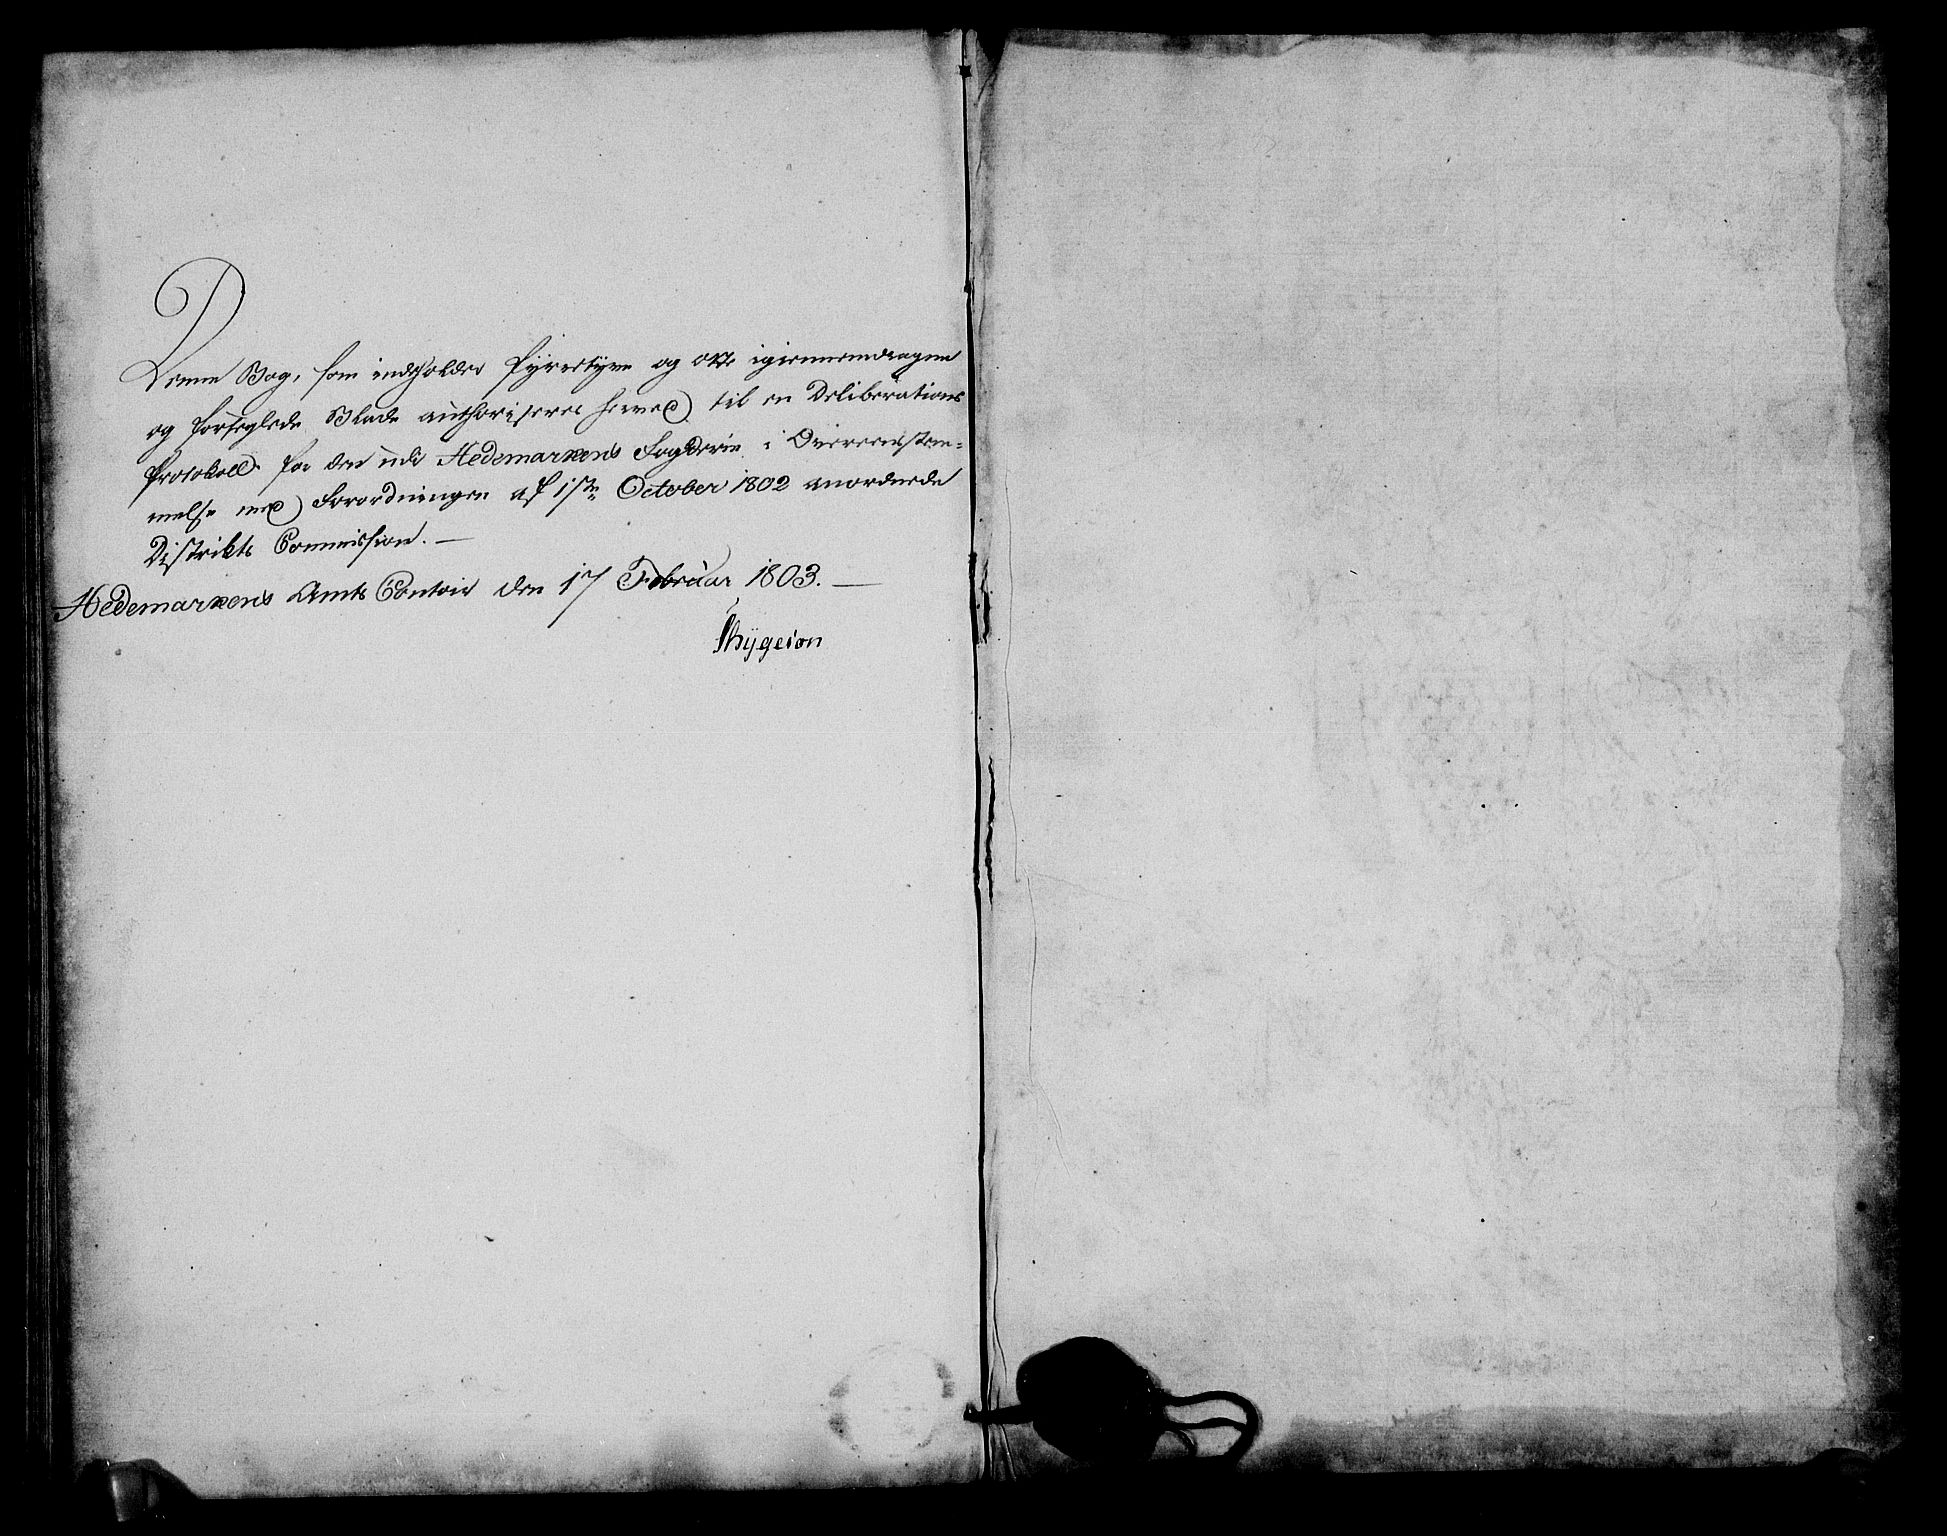 Denne Bog, som indeholder fyrretyve og otte igiennemdragne
og forseglede Blade authoriseres herved til en Deliberations
Protokoll for den udi Hedemarkens Fogderie i Overeenstem=
melse med Forordningen af 1ste October 1802 anordnede
Distrikts Commission. —
Hedemarkens Amts Contoir den 17 Februar 1803. —
Thygeson